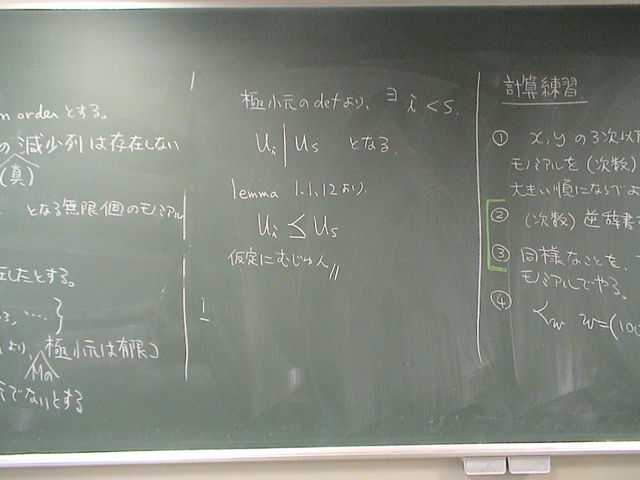 m orderとする。
の減少列は存在しない
(真)
となる無限個のモノミアル
したとする。
, ‥‥ }
より, 極小元は有限コ
でないとする
極小元のdefより、∃ i < s.
Ui | Us となる
lemma 1.1.12より.
Ui ≤ Us
仮定にむじゅん //
計算練習
① x, y の3次以
モノミアルを (次数)
大きい順にならべよ
② (次数) 逆辞書
③ 同様なことを、
モノミアルでやる。
④ <w w=(100